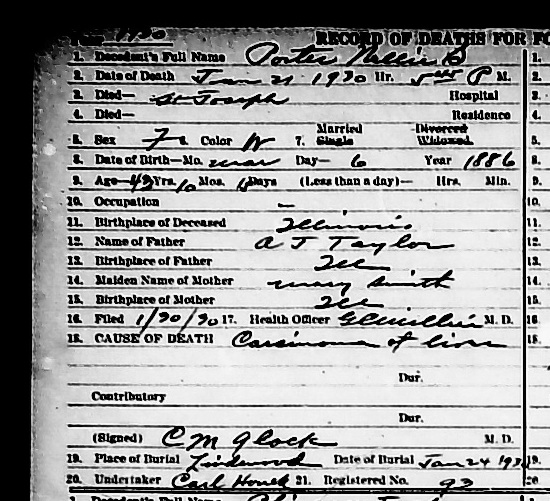 1930 RECORD OF DEATHS FOR
1. Decedent's Full Name Porter Nellie B 1.
2. Date of Death Jan 21 1930 Hr. 5 45 P M. 2.
3. Died— St Joseph Hospital 3.
4. Died— Residence 4.
5. Sex F 6. Color W 7. Married Single Divorced Widowed 5.
8. Date of Birth—Mo. mar Day— 6 Year 1886 8.
9. Age—43 Yrs. 10 Mos. 15 Days (Less than a day)— Hrs. Min. 9.
10. Occupation — 10.
11. Birthplace of Deceased Illinois 11.
12. Name of Father A J Taylor 12.
13. Birthplace of Father Ill 13.
14. Maiden Name of Mother mary smith 14.
15. Birthplace of Mother Ill 15.
16. Filed 1/30/30 17. Health Officer M. D. 16.
18. CAUSE OF DEATH Carsinoma of liver 18.
Dur.
Contributory
Dur.
(Signed) C M Glock M. D.
19. Place of Burial Lindenwood Date of Burial Jan 24 1930 19.
20. Undertaker Carl 21. Registered No. 93 20
1. Decedent's Full Name